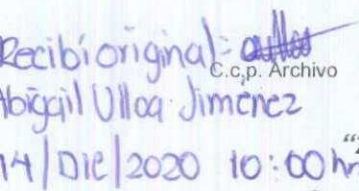 Recibí original:
C.c.p. Archivo
Abigail Ulloa Jiménez
14/Dic/2020 10:00 hr